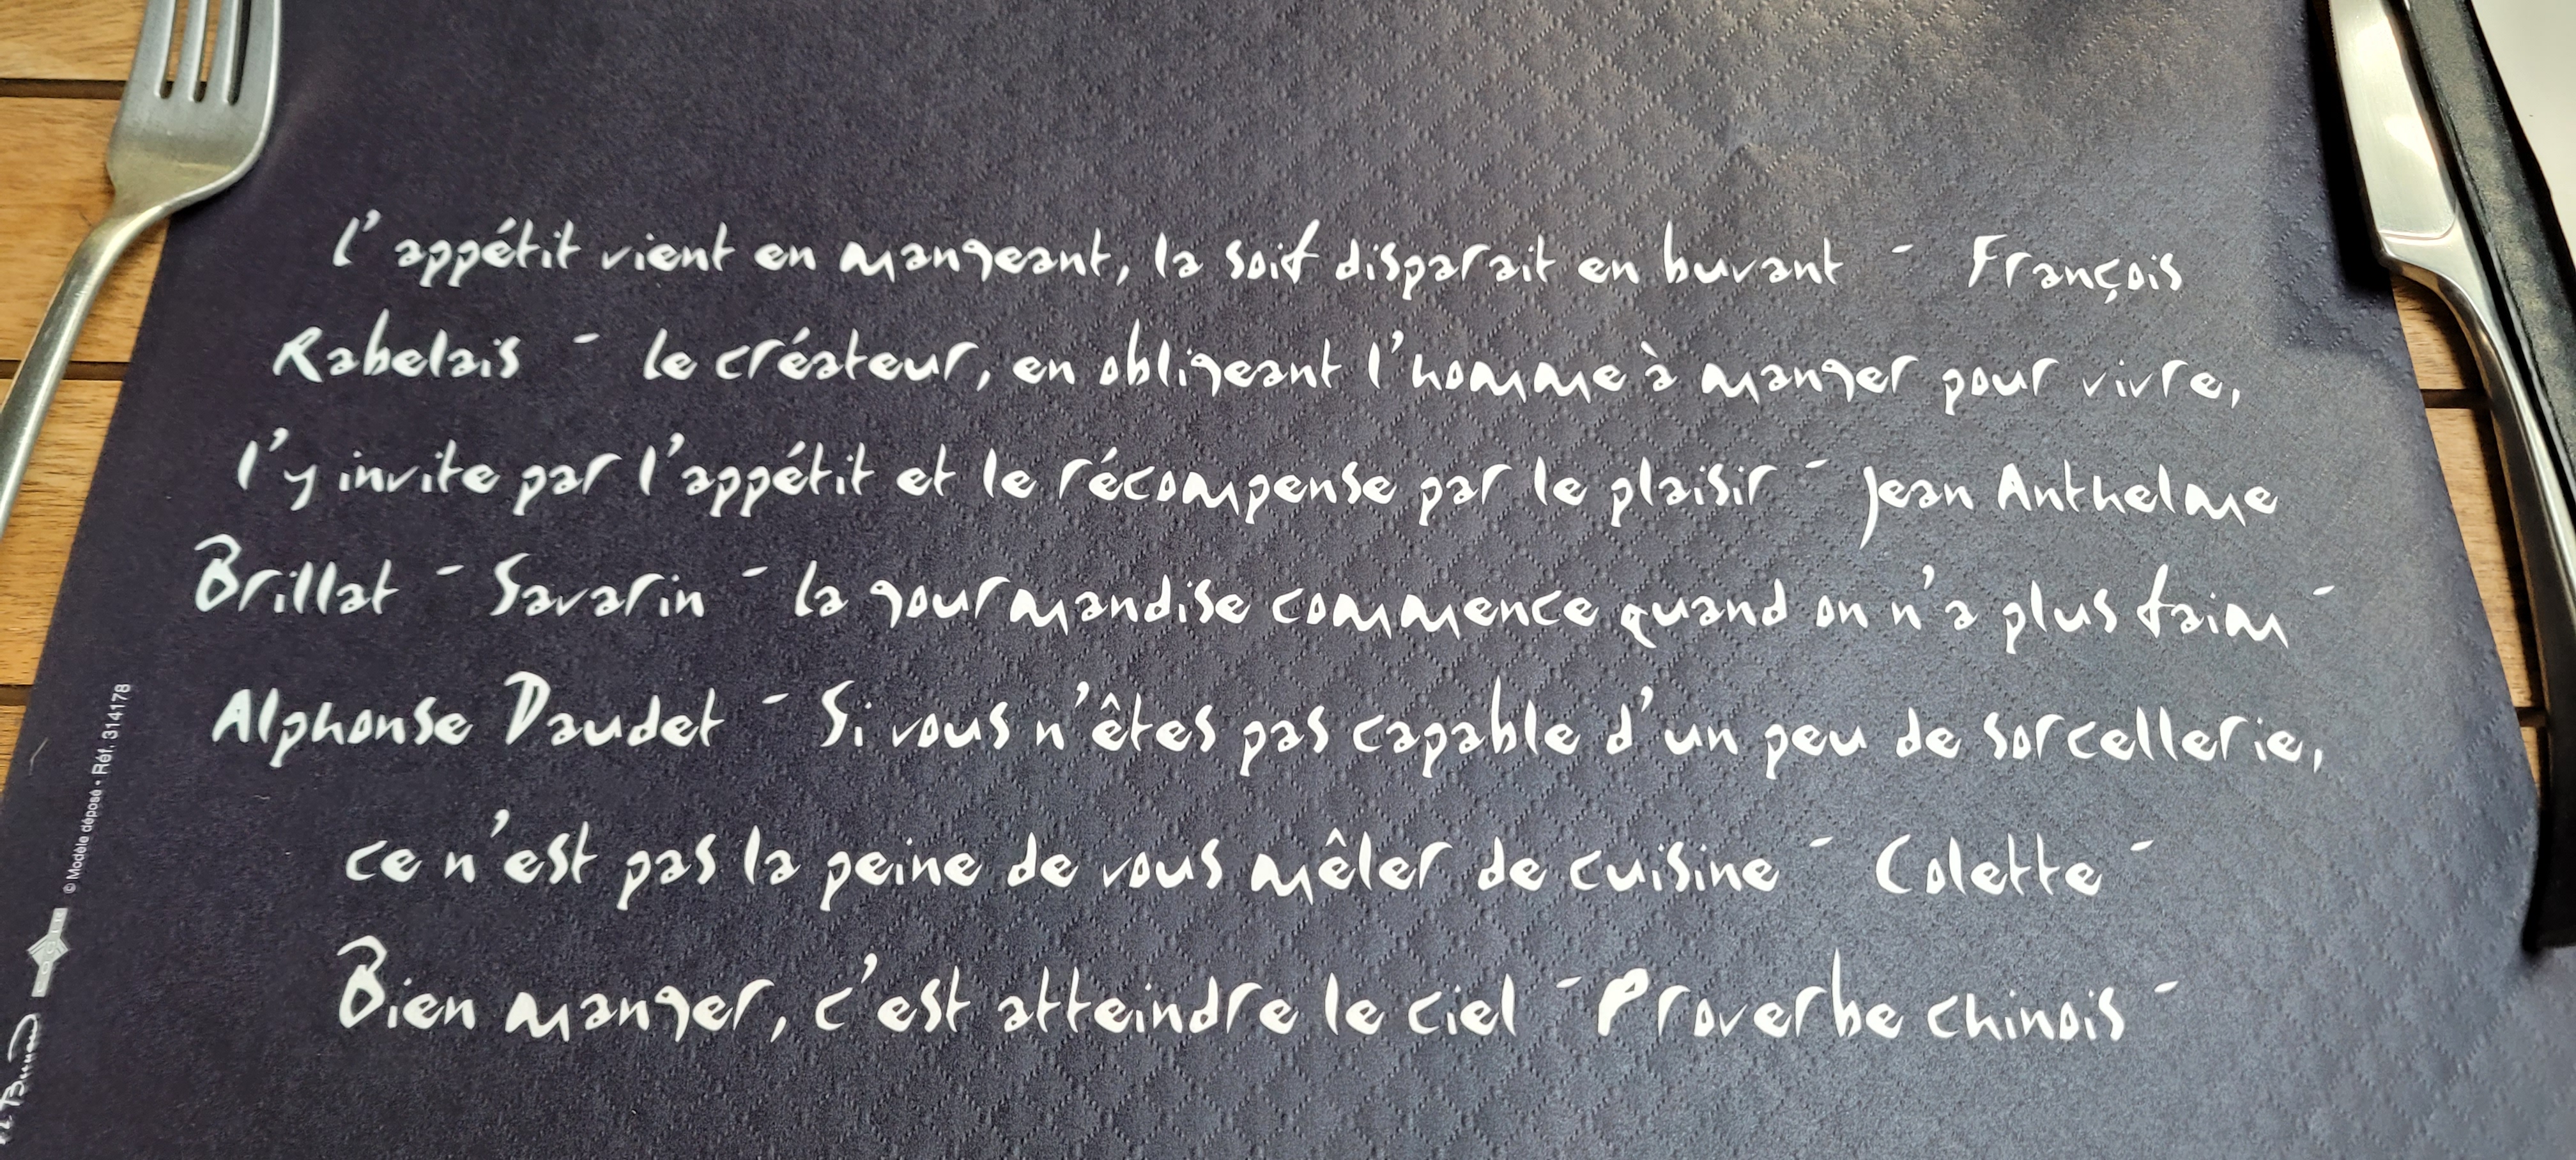 l'appétit vient en mangeant, la soif disparait en buvant - François
Rabelais - le créateur, en obligeant l'homme à manger pour vivre,
l'y invite par l'appétit et le récompense par le plaisir - Jean Anthelme
Brillat - Savarin - la gourmandise commence quand on n'a plus faim -
Alphonse Daudet - Si vous n'êtes pas capable d'un peu de sorcellerie,
ce n'est pas la peine de vous mêler de cuisine - Colette -
Bien manger, c'est atteindre le ciel - Proverbe chinois -
© Modèle déposé • Réf. 314178